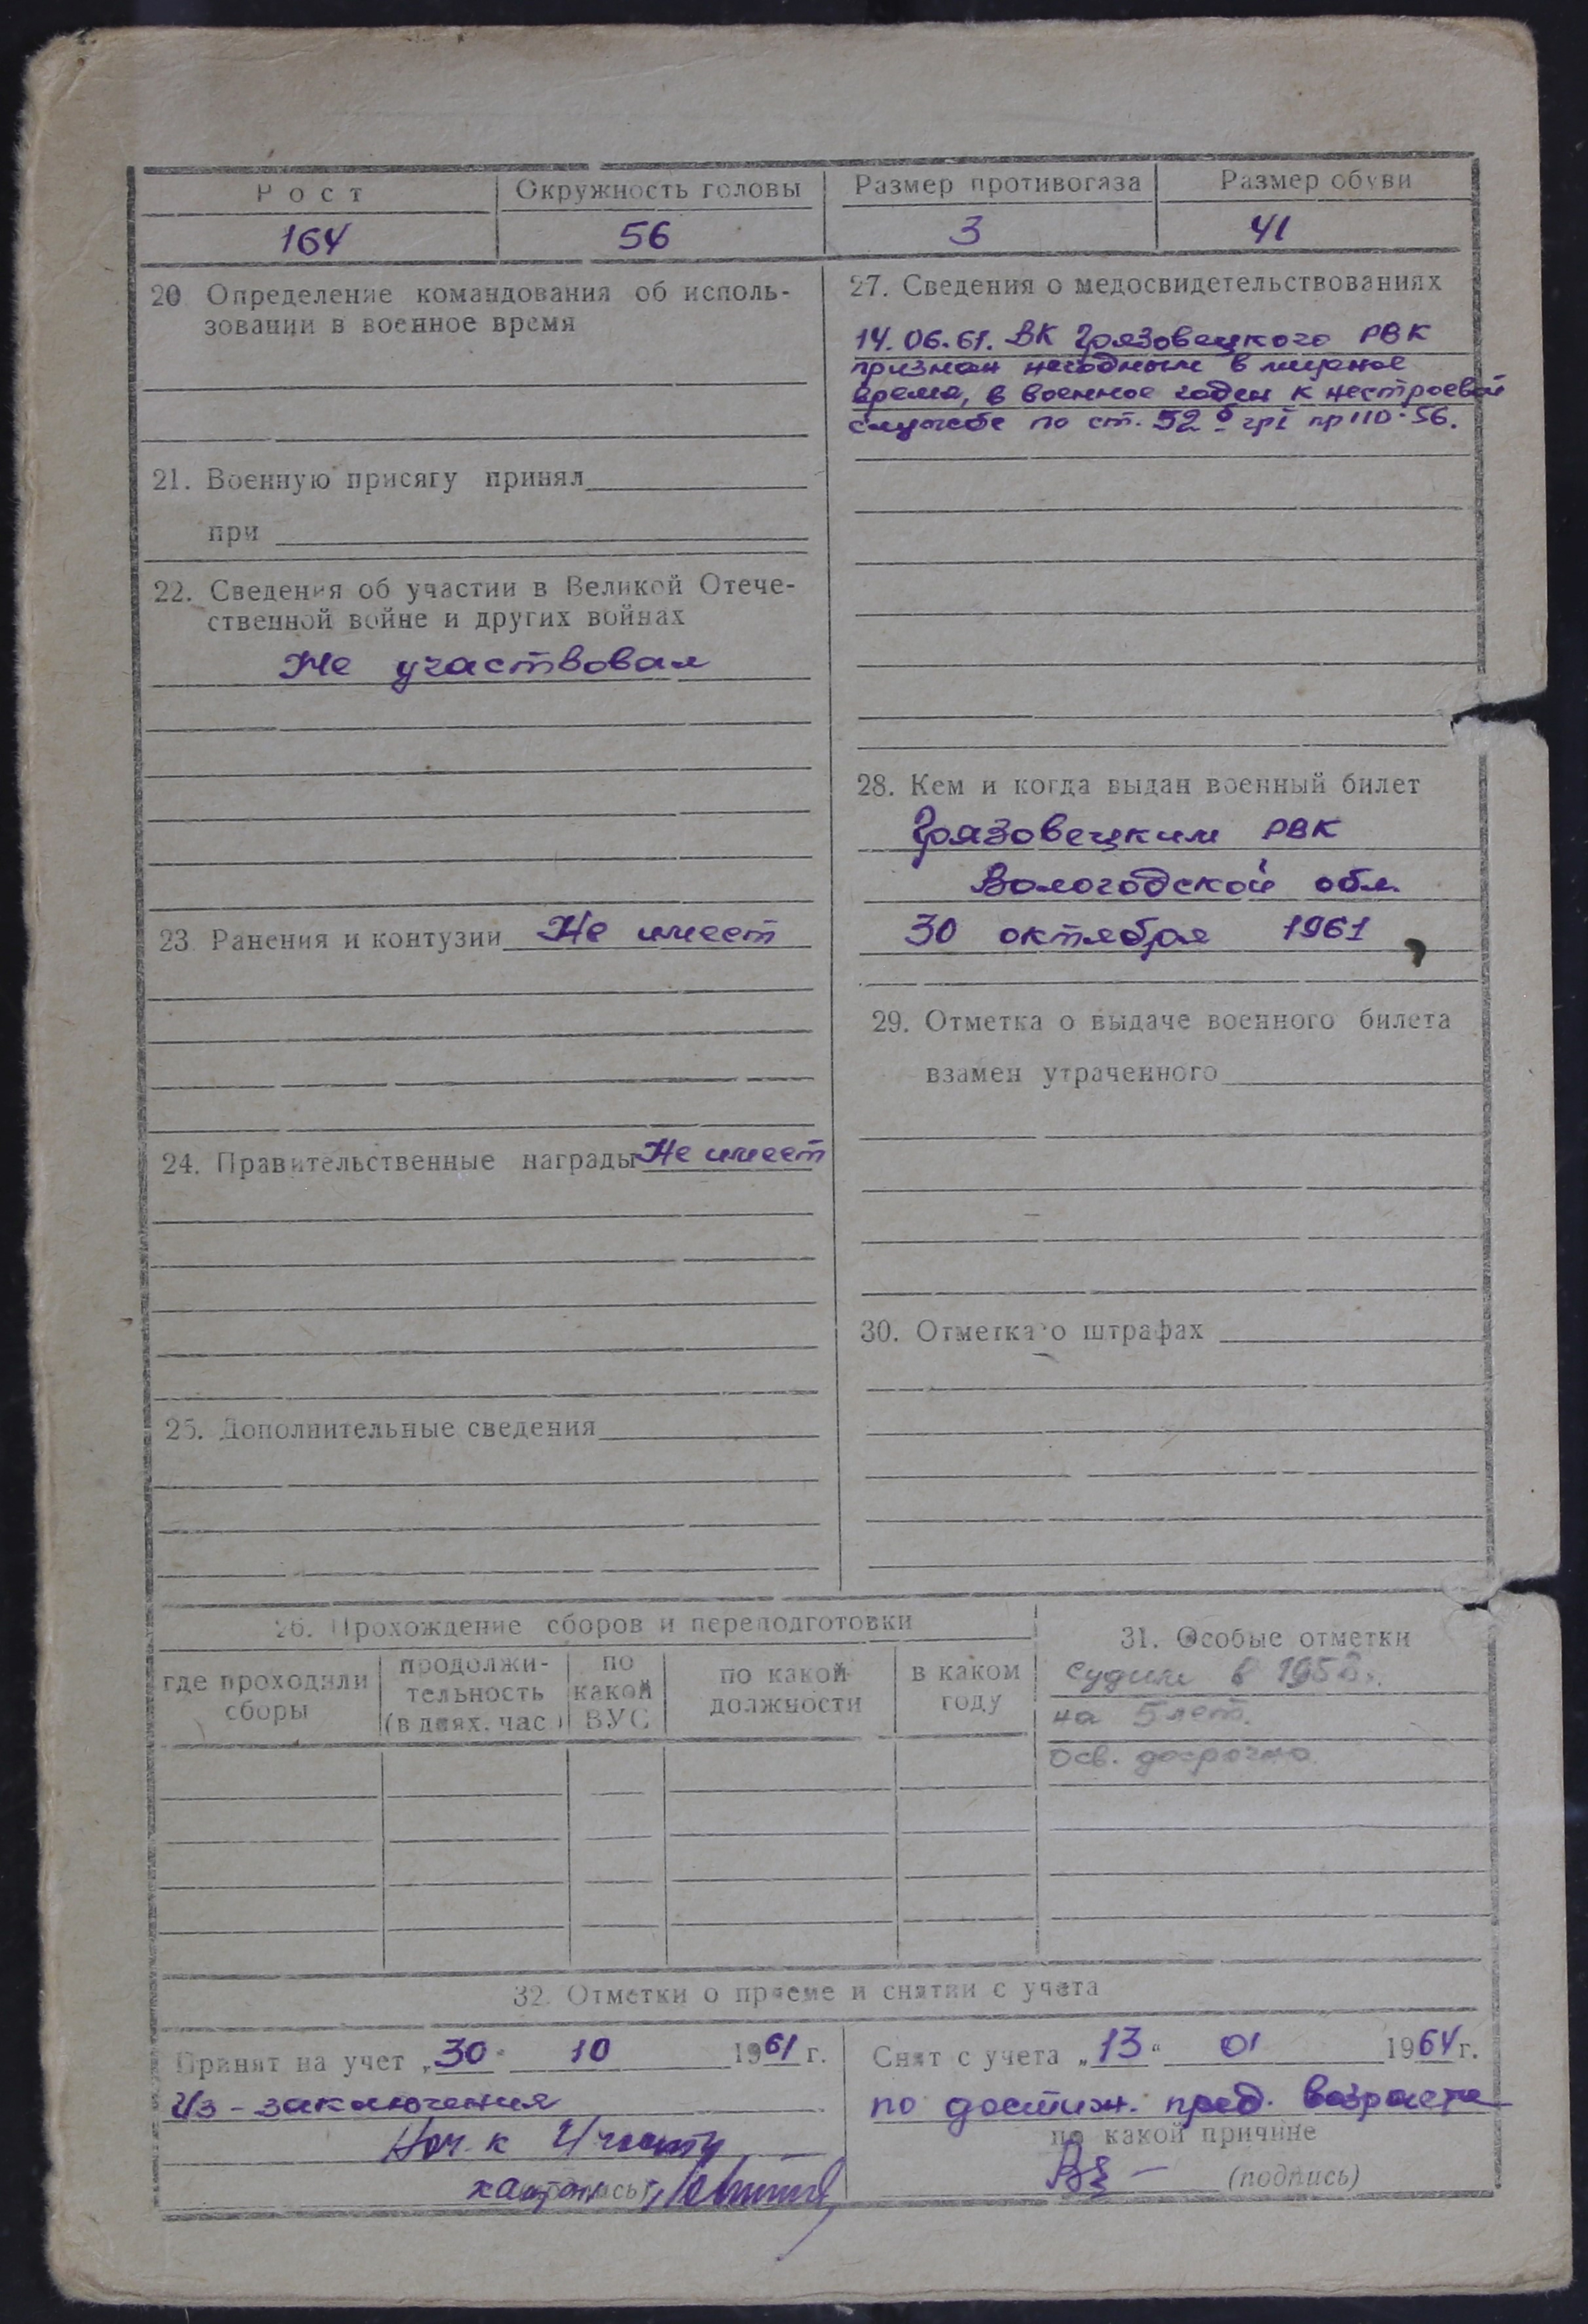 Рост
Окружность головы
Размер противогаза
Размер обуви
164
56
3
41
20 Определение командования об исполь-
зовании в военное время
21. Военную присягу принял
при
22. Сведения об участии в Великой Отече-
ственной войне и других войнах
Не участвовал
23. Ранения и контузии Не имеет
24. Правительственные награды Не имеет
25. Дополнительные сведения
27. Сведения о медосвидетельствованиях
14.06.61. ВК Грязовецкого РВК
признан негодным в мирное
время, в военное годен к нестроевой
службе по ст. 52 б гр I пр 110-56.
28. Кем и когда выдан военный билет
Грязовецким РВК
Вологодской обл.
30 октября 1961
29. Отметка о выдаче военного билета
взамен утраченного
30. Отметка о штрафах
26. Прохождение сборов и переподготовки
где проходили
сборы
продолжи-
тельность
(в днях, час.)
по
какой
ВУС
по какой
должности
в каком
году
31. Особые отметки
Судим в
на 5 лет.
Осв. досрочно.
32. Отметки о приеме и снятии с учета
Принят на учет „30" 10 1961 г.
Из-заключения
Нач. к
Снят с учета „13" 01 1964 г.
по достиж. пред. возраста
по какой причине
(подпись)